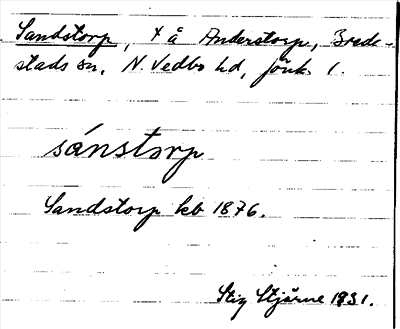 Sandstorp, t å Anderstorp, Brede-
stads sn, N. Vedbo hd, Jönk. l.
sánstorp
Sandstorp kb 1876.
Stig Stjärne 1931.